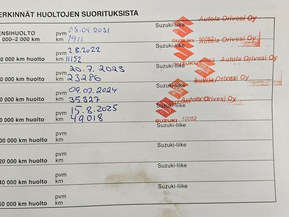 ERKINNÄT HUOLTOJEN SUORITUKSISTA
ENSIHUOLTO pvm 06.09.2021 Suzuki-liike Autola Orivesi Oy
000–2 000 km km 1911
pvm 2.8.2022 Suzuki-liike
000 km huolto km 11152
pvm 20.7.2023 Suzuki-liike Autola Orivesi Oy
000 km huolto km 23286
pvm 09.07.2024 Suzuki-liike Autola Orivesi Oy
000 km huolto km 35327
pvm 15.8.2025 Suzuki-liike Autola Orivesi Oy
000 km huolto km 49018 SUZUKI 10052
pvm Suzuki-liike
000 km huolto km
pvm Suzuki-liike
20 000 km huolto km
pvm Suzuki-liike
40 000 km huolto km
pvm Suzuki-liike
60 000 km huolto km